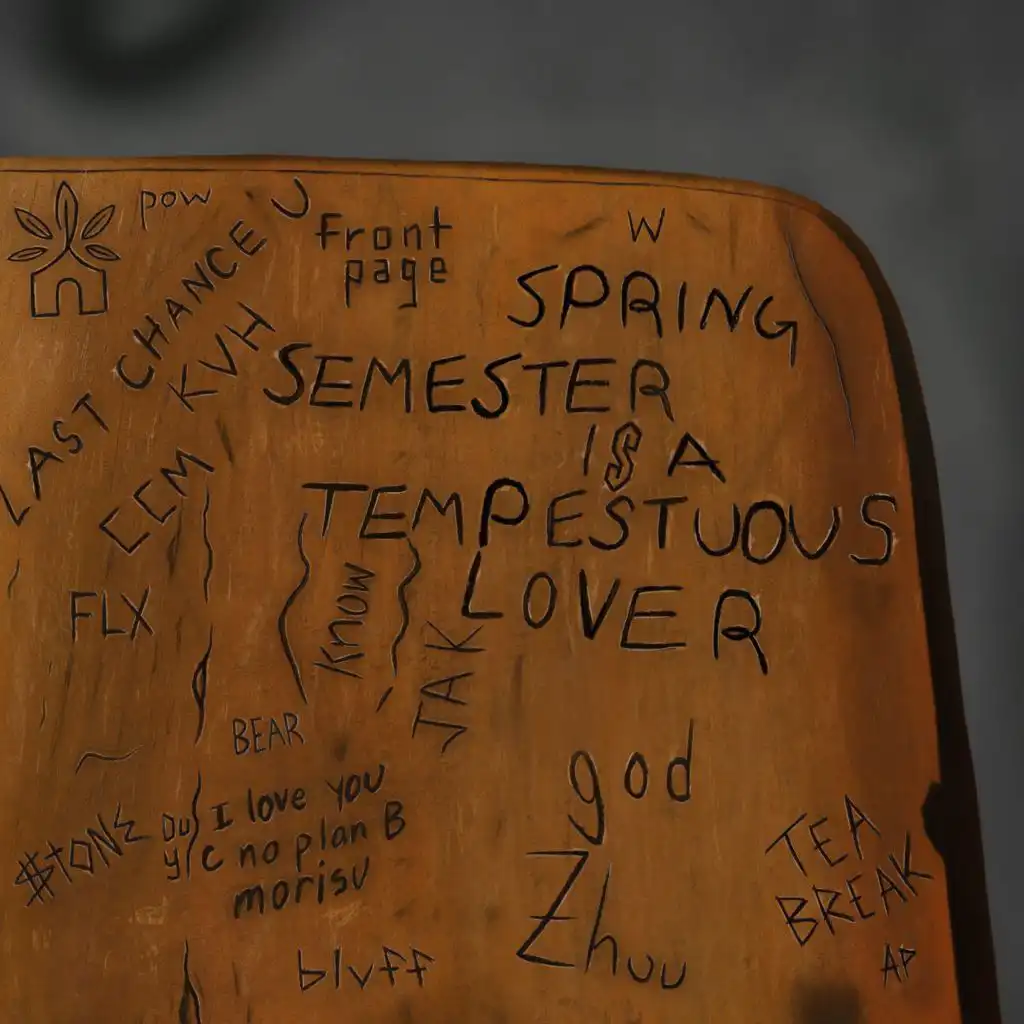 pow
J
Front
page
W
LAST CHANCE
KVH
SPRING
SEMESTER
IS A
TEMPESTUOUS
LOVER
CCM
FLX
Know
JAK
BEAR
god
Zhuu
$TONE
I love you
no plan B
morisu
bluff
TEA
BREAK
AP